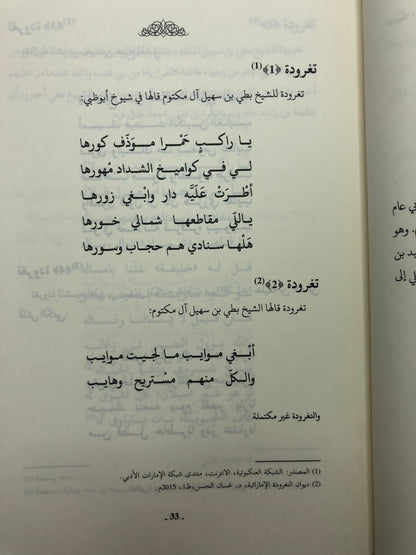 تغرودة ﴿1﴾(1)
تغرودة للشيخ بطي بن سهيل آل مكتوم قالها في شيوخ أبوظبي:
يا راكبٍ حَمْرا موَذّف كورها
لي في كواميخ الشداد مْهورها
أطْرَتْ عَلَيَّه دار وابْغي زورها
ياللّي مقاطعها شمالي خورها
هَلْها سنادي هم حجاب وسورها
تغرودة ﴿2﴾(2)
تغرودة قالها الشيخ بطي بن سهيل آل مكتوم:
أبْغي موايب ما لجيت موايب
والكلّ منهم مستريح وهايب
والتغرودة غير مكتملة
(1) المصدر: الشبكة العنكبوتية، الانترنت، منتدى شبكة الإمارات الأدبي.
(2) ديوان التغرودة الإماراتية، د. غسان الحسن،ط1، 2015م.
- 33 -
في عام
وهو
يد بن
لي إلى